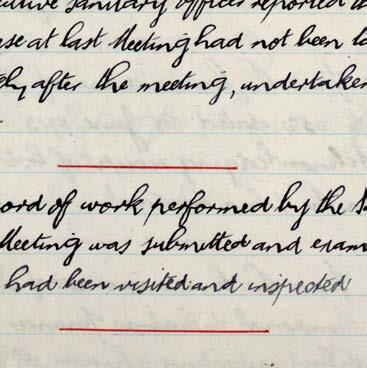 Sanitary officer reported
at last Meeting had not been
after the meeting, undertaken
of work performed by the
Meeting was submitted and
had been visited and inspected